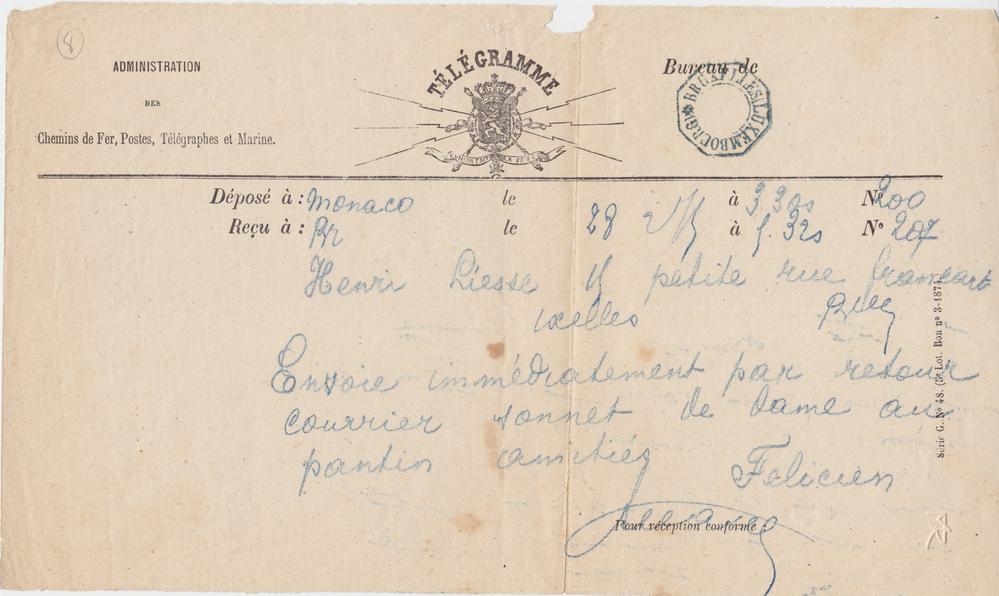 8
ADMINISTRATION
DES
Chemins de Fer, Postes, Télégraphes et Marine.
TÉLÉGRAMME
L'UNION FAIT LA FORCE
Bureau de
BRUXELLES(LUXEMBOURG)
Déposé à : Monaco le 28 à 3.30s N° 200
Reçu à : Br le à 5.32s N° 207
Henri Liesse 11 petite rue francart
ixelles Brux
Envoie immédiatement par retour
courrier sonnet de dame au
pantin amitiés Felicien
Pour réception conforme :
Série G. N° 48. (3e Lot. Bon n° 3-1874.)